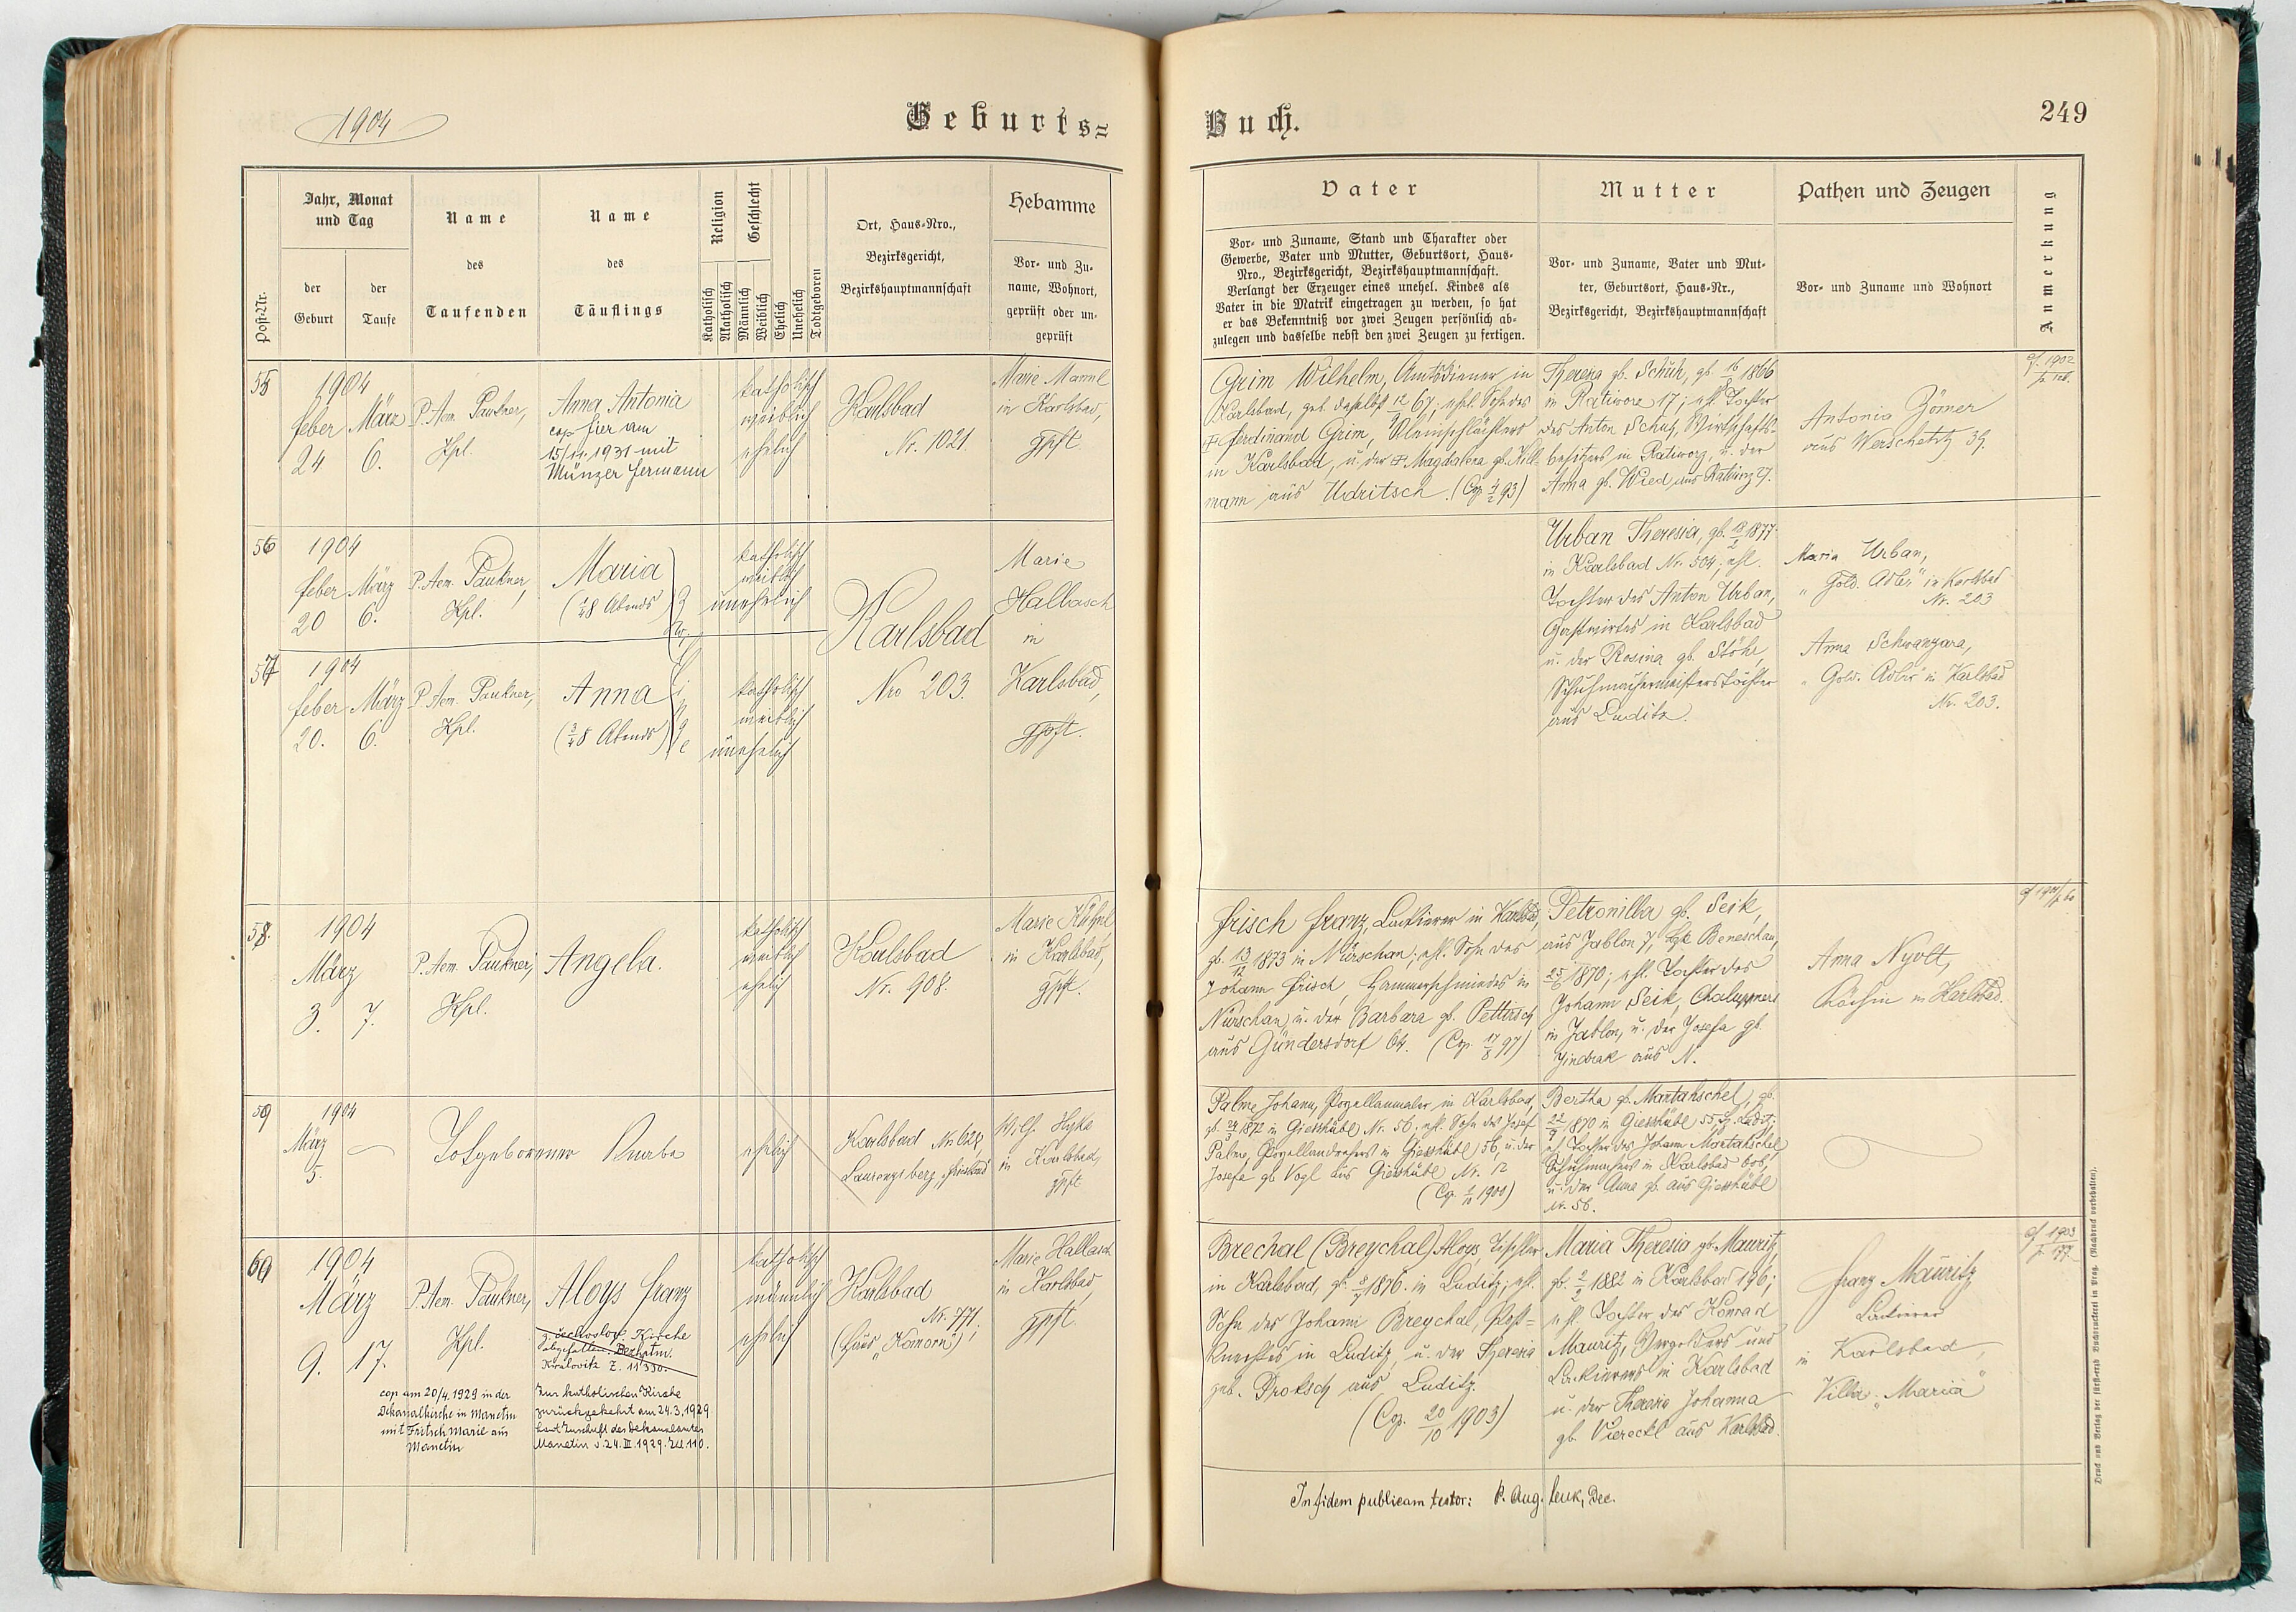 1904
Geburts=
Jahr, Monat
und Tag
Post-Nr.
der
Geburt
der
Taufe
Name
des
Taufenden
Name
des
Täuflings
Religion
Geschlecht
Katholisch
Akatholisch
Männlich
Weiblich
Ehelich
Unehelich
Todtgeboren
Ort, Haus-Nro.,
Bezirksgericht,
Bezirkshauptmannschaft
Hebamme
Vor- und Zu-
name, Wohnort,
geprüft oder un-
geprüft
55
1904
feber
24
März
6.
P. Aem. Paukner,
Kpl.
Anna Antonia
cop hier am
15/11. 1931 mit
Münzer Hermann
katholisch
weiblich
ehelich
Karlsbad
Nr. 1021.
Marie Mannl
in Karlsbad,
gpft.
56
1904
feber
20
März
6.
P. Aem. Paukner,
Kpl.
Maria
(¼8 Abends)
Zwillinge
katholisch
weiblich
unehelich
Karlsbad
Nro 203.
Marie
Hallasch
in
Karlsbad,
gpft.
57
1904
feber
20.
März
6.
P. Aem. Paukner,
Kpl.
Anna
(¾8 Abends)
katholisch
weiblich
unehelich
58.
1904
März
3.
7.
P. Aem. Paukner,
Kpl.
Angela.
katholisch
weiblich
ehelich
Karlsbad
Nr. 908.
Marie Kühnl
in Karlsbad,
gpft.
59
1904
März
5.
Todgeborener Knabe
ehelich
Karlsbad No 628,
Laurenziberg,
Wilh. Hyke
in Karlsbad,
gpft.
60
1904
März
9.
17.
P. Aem. Paukner,
Kpl.
Aloys Franz
z. čechoslov. Kirche
abgefallen.
Kralovitz Z. 11'330.
cop am 20/4. 1929 in der
Dekanalkirche in Manetin
mit Fritsch Marie aus
Manetin
Zur katholischen Kirche
zurückgekehrt am 24.3.1929
laut Zuschrift des Dekanalamtes
Manetin v. 24. III. 1929. Zl 110.
katholisch
männlich
ehelich
Karlsbad
Nr. 771.
(Haus „Komorn")
Marie Hallasch
in Karlsbad,
gpft.
Buch.
249
Vater
Vor- und Zuname, Stand und Charakter oder
Gewerbe, Vater und Mutter, Geburtsort, Haus-
Nro., Bezirksgericht, Bezirkshauptmannschaft.
Verlangt der Erzeuger eines unehel. Kindes als
Vater in die Matrik eingetragen zu werden, so hat
er das Bekenntniß vor zwei Zeugen persönlich ab-
zulegen und dasselbe nebst den zwei Zeugen zu fertigen.
Mutter
Vor- und Zuname, Vater und Mut-
ter, Geburtsort, Haus-Nr.,
Bezirksgericht, Bezirkshauptmannschaft
Pathen und Zeugen
Vor- und Zuname und Wohnort
Anmerkung
Grim Wilhelm, Amtsdiener in
Karlsbad, geb. daselbst 12/1 67; ehel. Sohn des
Ferdinand Grim, in Karlsbad, u. der Magdalena gb. Kill-
mann aus Udritsch. (Cop. 4/2 93)
Theresa gb. Schuh, gb 16/8 1866
in Ratiworz 17; ehl. Tochter
des Anton Schuh, Wirtschafts-
besitzers in Ratiworz, u. der
Anna gb. Wied aus
Antonia Zörner
aus Werscheditz 39.
cf. 1902
Urban Theresia, gb. 1877
in Karlsbad Nr. 504; ehl.
Tochter des Anton Urban,
Gastwirtes in Karlsbad
u. der Rosina gb. Stöhr,
Schuhmachermeisterstochter
aus Luditz.
Maria Urban,
„Gold. Adler" in Karlsbad
Nr. 203
Anna Schwanzara,
„Gold. Adler" in Karlsbad
Nr. 203.
Frisch Franz, Lackierer in Karlsbad,
gb. 13/12 1873 in Nürschan; ehl. Sohn des
Johann Frisch, Hammerschmiedes in
Nürschan, u. der Barbara gb. Pettirsch
aus Gündersdorf 64. (Cop. 17/8 97)
Petronilla gb. Seik,
aus Jablon 7, Bzk Beneschau,
25/6 1870; ehl. Tochter des
Johann Seik, Chaluppners
in Jablon, u. der Josefa gb.
Jindrak aus N.
Anna Nyvlt,
Köchin in Karlsbad.
Palme Johann, Porzellanmaler in Karlsbad,
1872 in Giesshübl Nr. 56; ehl. Sohn des Josef
Palme, Porzellandrehers in Giesshübl 56, u. der
Josefa gb Vogl aus Giesshübl Nr. 12
1900)
Bertha gb. Martahschel, gb.
22/9 1870 in Giesshübl 55,
Tochter des Johann Martahschel,
Schuhmachers in Karlsbad 606,
u. der Anna gb. aus Giesshübl
Nr. 56.
Brechal (Breychal) Aloys, Tischler
in Karlsbad, gb. 8/7 1876. in Luditz; ehl.
Sohn des Johann Breychal,
Knechtes in Luditz, u. der Theresia
geb. Proksch aus Luditz.
(Cop. 20/10 1903)
Maria Theresia gb. Mauritz,
gb. 1882 in Karlsbad 196;
ehl. Tochter des Konrad
Mauritz, Vergolders und
Lackierers in Karlsbad
u. der Theresia Johanna
gb. Viereckl aus Karlsbad.
Franz Mauritz
Lackierer
in Karlsbad,
Villa „Maria"
cf 1903
In fidem publicam testor: P. Aug. Dec.
Druck und Verlag der fürst-erzb. Buchdruckerei in Prag. (Nachdruck vorbehalten).